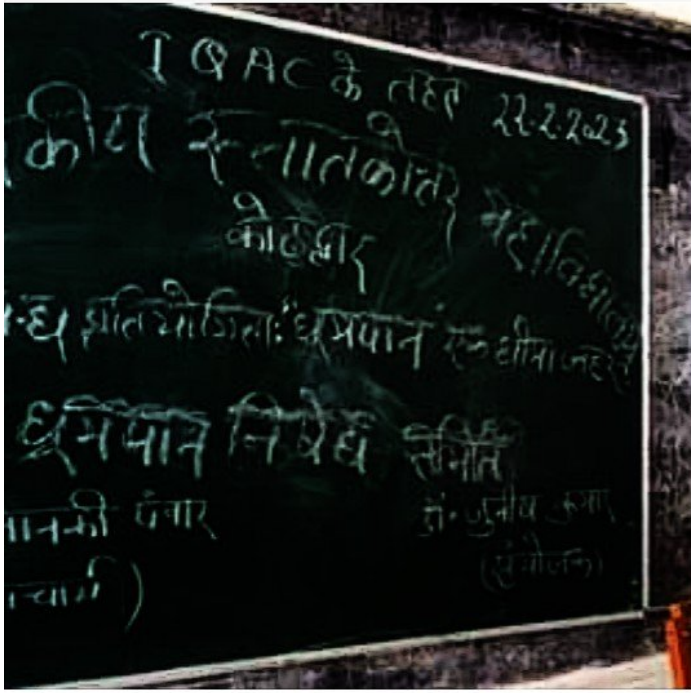 IQAC के तहत 22.2.2023
कीय स्नातकोत्तर महाविद्यालय
कोटद्वार
न्ध प्रतियोगिता: "धूम्रपान एक धीमा जहर"
धूम्रपान निषेध समिति
जानकी पंवार डॉ. कुमार
चार्य) (संयोजक)